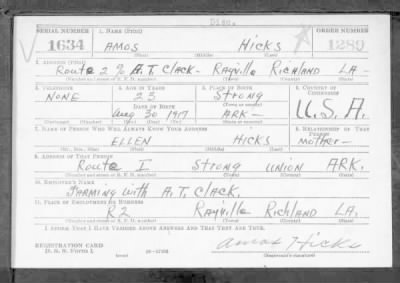 Disc.
SERIAL NUMBER 1. NAME (Print) ORDER NUMBER
1634 AMOS HICKS 1289
(First) (Middle) (Last)
2. ADDRESS (Print)
Route 2 % A.T. CLACK - RAYVILLE RICHLAND LA -
(Number and street or R. F. D. number) (Town) (County) (State)
3. TELEPHONE 4. AGE IN YEARS 5. PLACE OF BIRTH 6. COUNTRY OF CITIZENSHIP
NONE 23 STRONG
DATE OF BIRTH U.S.A.
Aug 30 1917 ARK -
(Exchange) (Number) (Mo.) (Day) (Yr.) (State or country)
7. NAME OF PERSON WHO WILL ALWAYS KNOW YOUR ADDRESS 8. RELATIONSHIP OF THAT PERSON
ELLEN HICKS mother -
(Mr., Mrs., Miss) (First) (Middle) (Last)
9. ADDRESS OF THAT PERSON
Route I STRONG UNION ARK.
(Number and street or R. F. D. number) (Town) (County) (State)
10. EMPLOYER'S NAME
FARMING WITH A.T. CLACK.
11. PLACE OF EMPLOYMENT OR BUSINESS
R2 RAYVILLE RICHLAND LA.
(Number and street or R. F. D. number) (Town) (County) (State)
I AFFIRM THAT I HAVE VERIFIED ABOVE ANSWERS AND THAT THEY ARE TRUE.
REGISTRATION CARD
D. S. S. Form 1 Amos Hicks
(Registrant's signature)